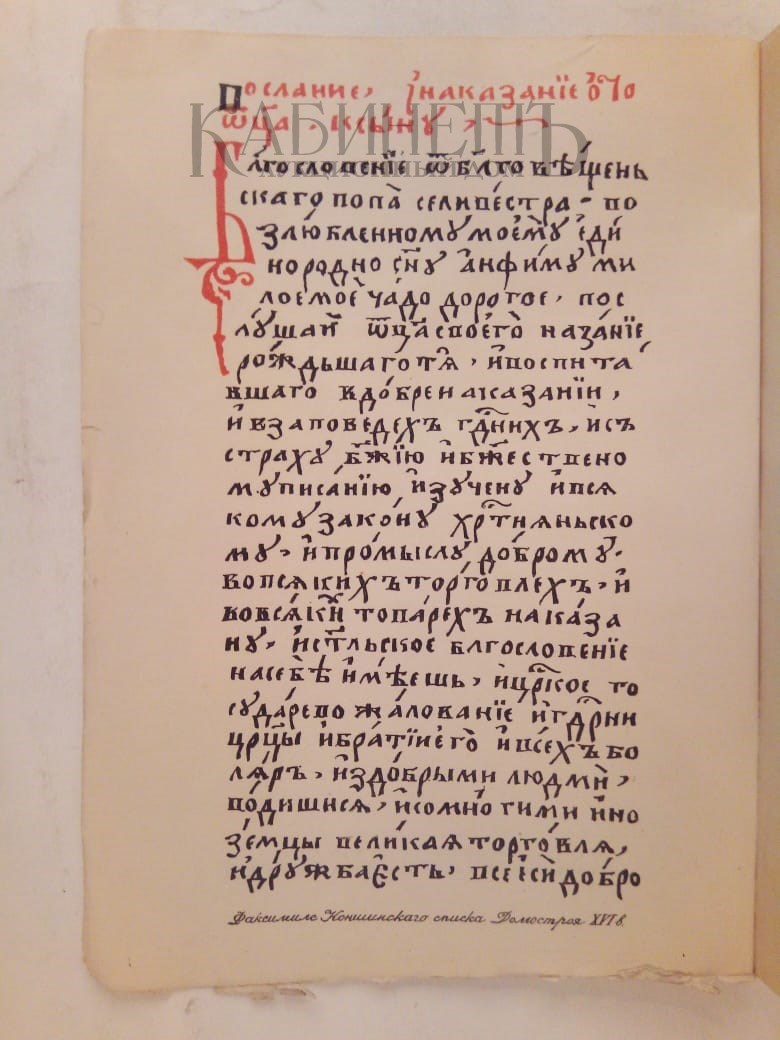 Послание, і наказанїе ѿ ѻ
ѿца, к сыну,
КАБИНЕТЪ
Благословенїе ѿ бл͠говѣщень
скаго попа селивестра - во
злюбленному моему еди
нородно сн͠у анфиму ми
лое мое чадо дорогое, пос
лушай ѿца своего наказанїе,
рождьшаго тѧ, и воспита
вшаго в добре наказанїи,
и в заповедехъ гд͠нихъ, и съ
страху бж͠їю и бж͠ествено
му писанїю изучену и всѧ
кому закону хр͠тиѧньско
му, и промыслу доброму,
во всѧкихъ торговлехъ, и
во всѧки товарехъ наказа
ну, и ст͠льское бл͠гословенїе
на себѣ имѣешь, и цр͠кое го
сударево жалованїе и гд͠рни
цр͠цы и братїи его и всехъ бо
лѧръ, и з добрыми людми,
водишисѧ, и со многими ино
земцы великаѧ торговлѧ,
и дружба есть, все еси добро
Факсимиле Коншинскаго списка Домостроя XVI в.